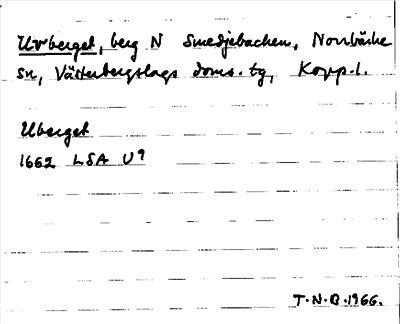 Uvberget, berg N Smedjebacken, Norrbärke
sn, Västerbergslags doms. tg, Kopp. l.
Uberget
1662 LSA U9
T.N.B. 1966.